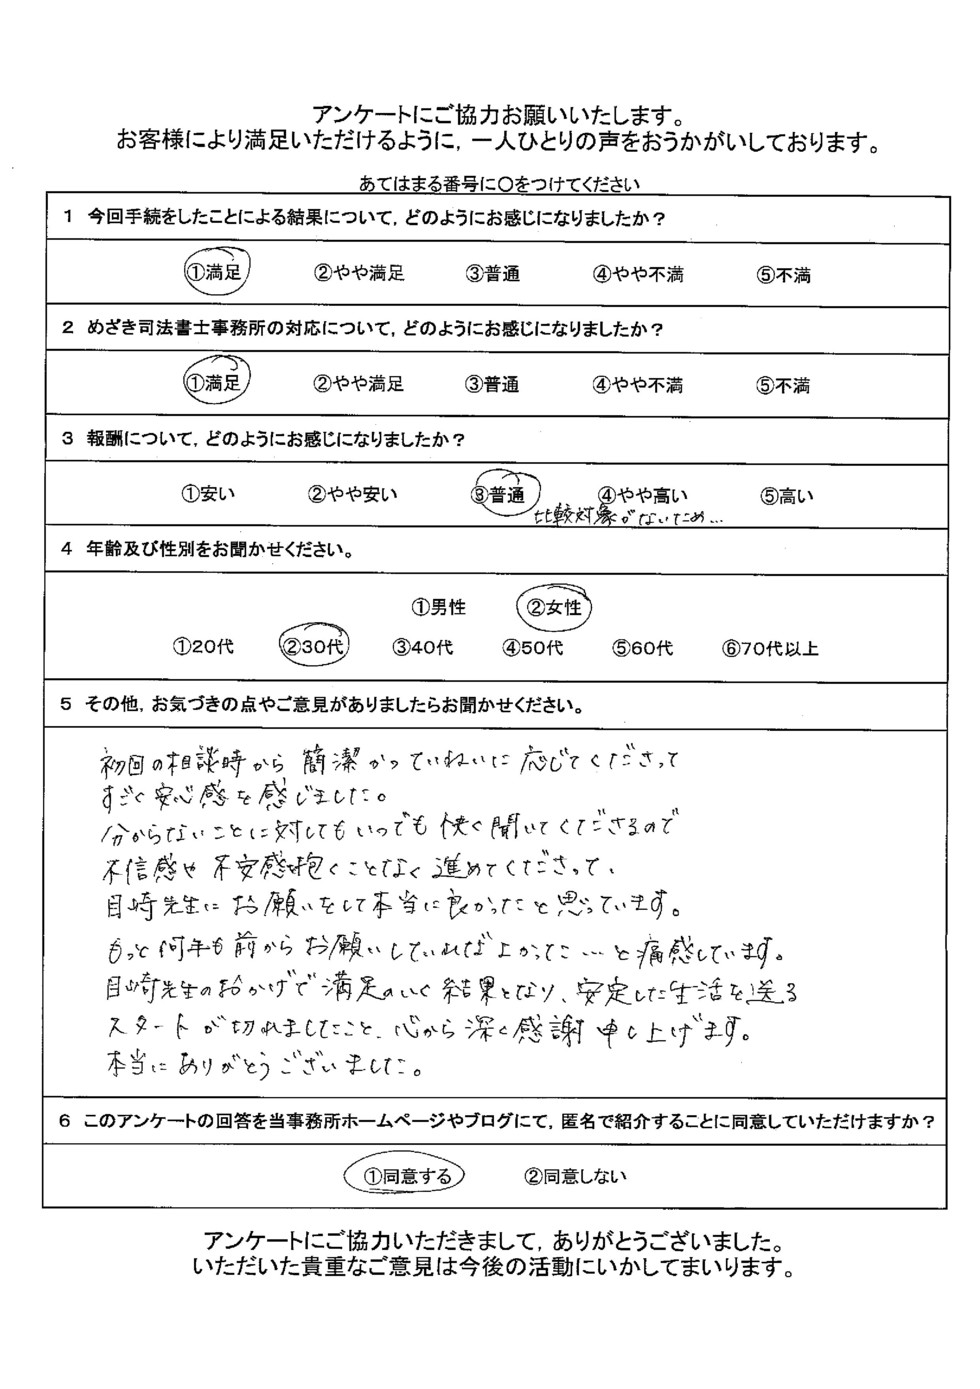 アンケートにご協力お願いいたします。
お客様により満足いただけるように，一人ひとりの声をおうかがいしております。
あてはまる番号に〇をつけてください
１ 今回手続をしたことによる結果について，どのようにお感じになりましたか？
①満足 ②やや満足 ③普通 ④やや不満 ⑤不満
２ めざき司法書士事務所の対応について，どのようにお感じになりましたか？
①満足 ②やや満足 ③普通 ④やや不満 ⑤不満
３ 報酬について，どのようにお感じになりましたか？
①安い ②やや安い ③普通 ④やや高い ⑤高い
比較対象がないため…
４ 年齢及び性別をお聞かせください。
①男性 ②女性
①20代 ②30代 ③40代 ④50代 ⑤60代 ⑥70代以上
５ その他，お気づきの点やご意見がありましたらお聞かせください。
初回の相談時から 簡潔かつていねいに 応じてくださって
すごく安心感を感じました。
分からないことに対してもいつでも 快く聞いてくださるので
不信感や 不安感を抱くことなく進めてくださって、
目崎先生に お願いをして本当に良かったと思っています。
もっと何年も前から お願いしていればよかった…と痛感しています。
目崎先生のおかげで満足のいく結果となり、安定した生活を送る
スタートが切れましたこと、心から深く感謝申し上げます。
本当にありがとうございました。
６ このアンケートの回答を当事務所ホームページやブログにて，匿名で紹介することに同意していただけますか？
①同意する ②同意しない
アンケートにご協力いただきまして，ありがとうございました。
いただいた貴重なご意見は今後の活動にいかしてまいります。